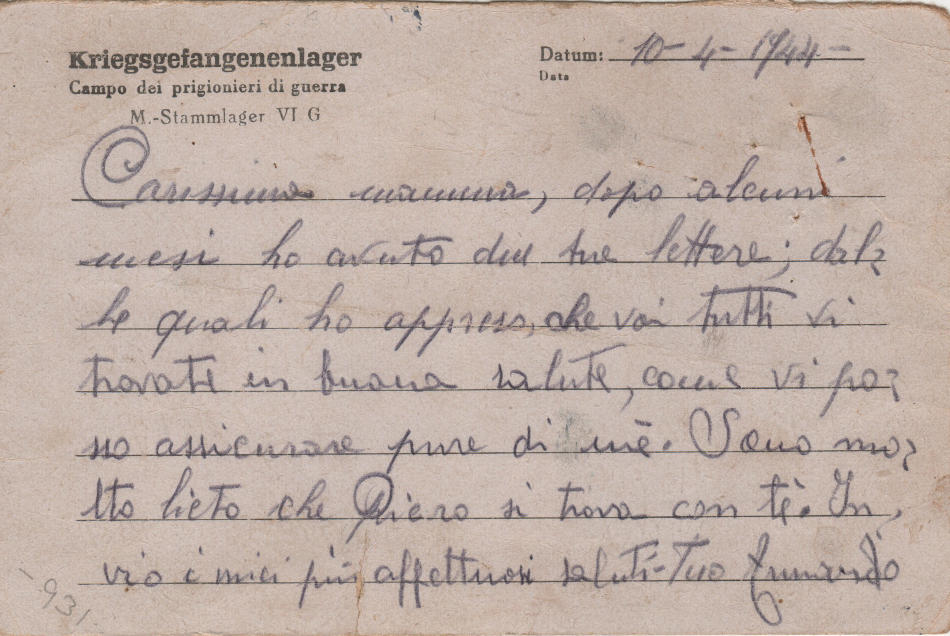 Kriegsgefangenenlager
Campo dei prigionieri di guerra
M.-Stammlager VI G
Datum: 10-4-1944-
Data
Carissima mamma, dopo alcuni
mesi ho avuto due tue lettere; dal-
le quali ho appreso, che voi tutti vi
trovate in buona salute, come vi po-
sso assicurare pure di mè. Sono mo-
lto lieto che Piero si trova con tè. In,
vio i miei più affettuosi saluti-Tuo
-931-